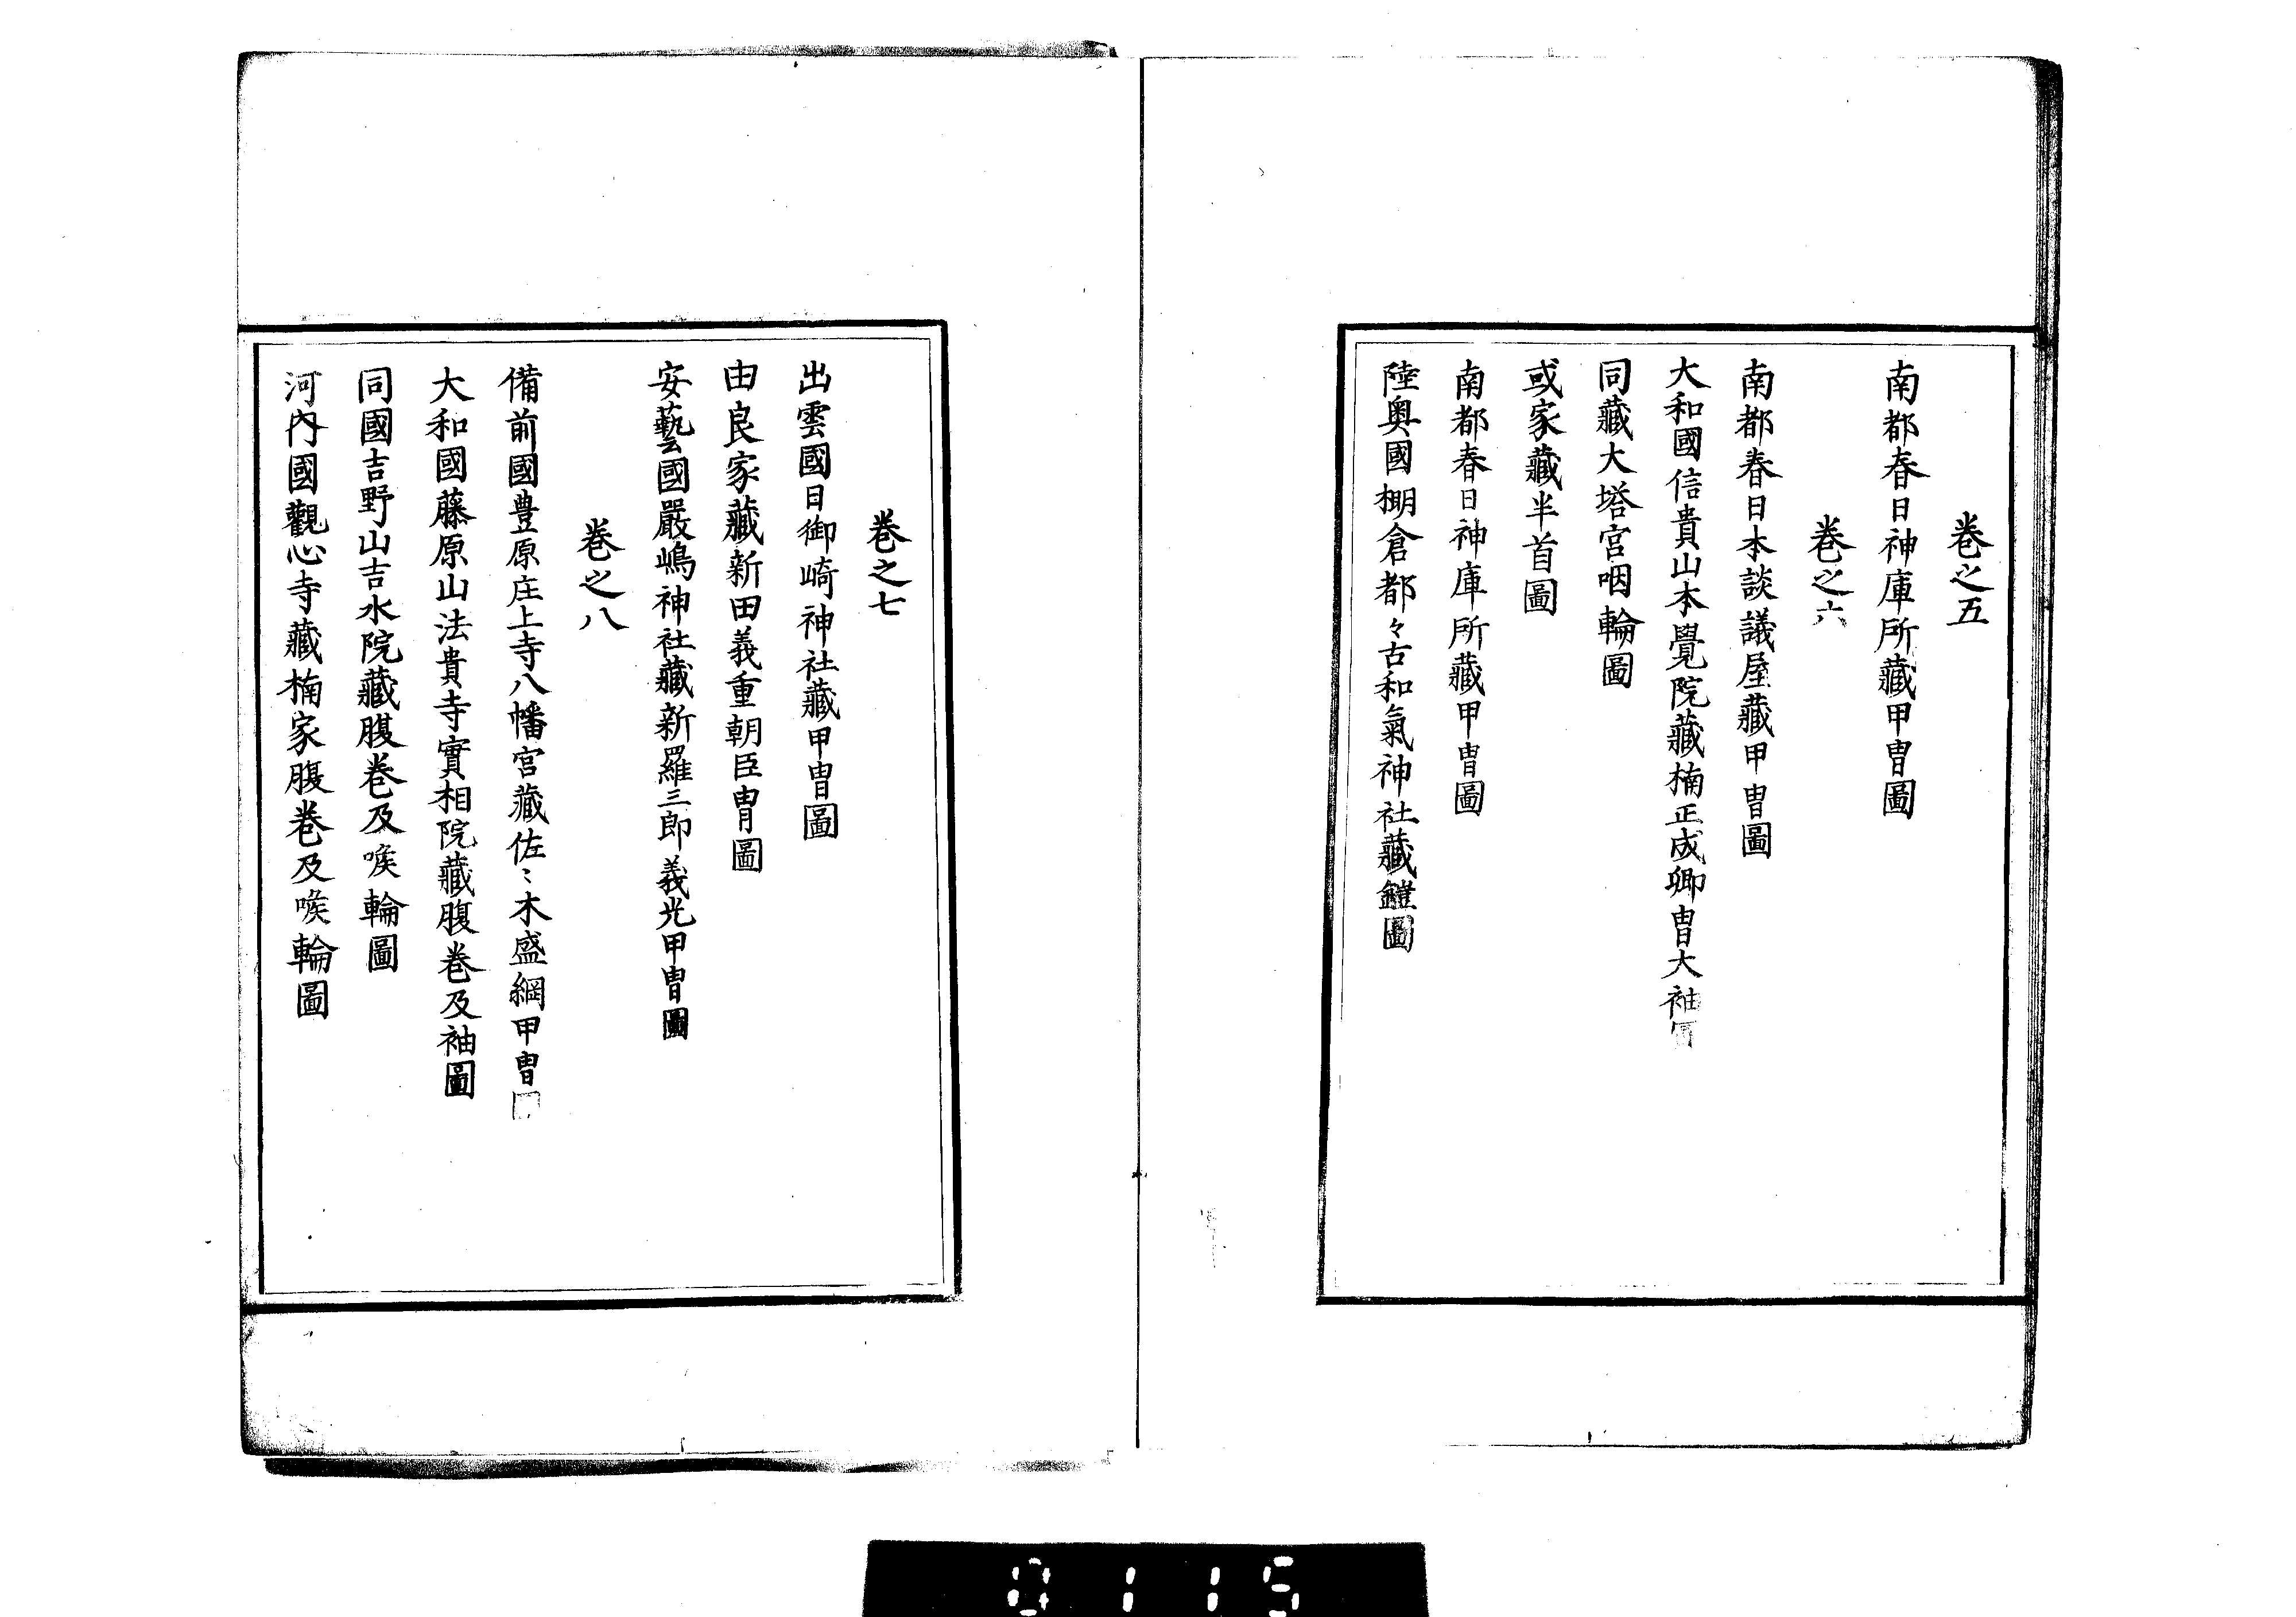 巻之五
南都春日神庫所藏甲冑圖
巻之六
南都春日本談議屋藏甲冑圖
大和國信貴山本覺院藏楠正成卿冑大袖圖
同藏大塔宮咽輪圖
或家藏半首圖
南都春日神庫所藏甲冑圖
陸奥國棚倉都々古和氣神社藏鎧圖
巻之七
出雲國日御崎神社藏甲冑圖
由良家藏新田義重朝臣冑圖
安藝國嚴嶋神社藏新羅三郎義光甲冑圖
巻之八
備前國豊原庄上寺八幡宮藏佐〻木盛綱甲冑圖
大和國藤原山法貴寺實相院藏腹巻及袖圖
同國吉野山吉水院藏腹巻及喉輪圖
河內國觀心寺藏楠家腹巻及喉輪圖
0115